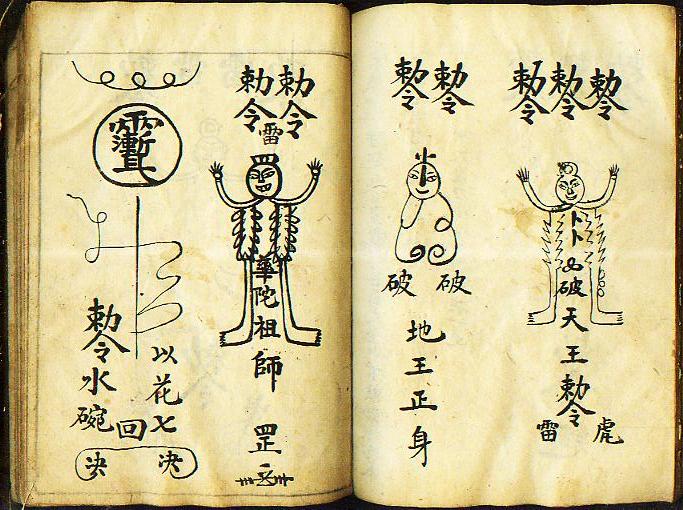 勅令 勅令 勅令
破
天王
勅令
虎
雷
勅令 勅令
破 破
地王正身
勅令 勅令
雷
華陀祖師
罡
以花七
回
勅令水碗
決 決